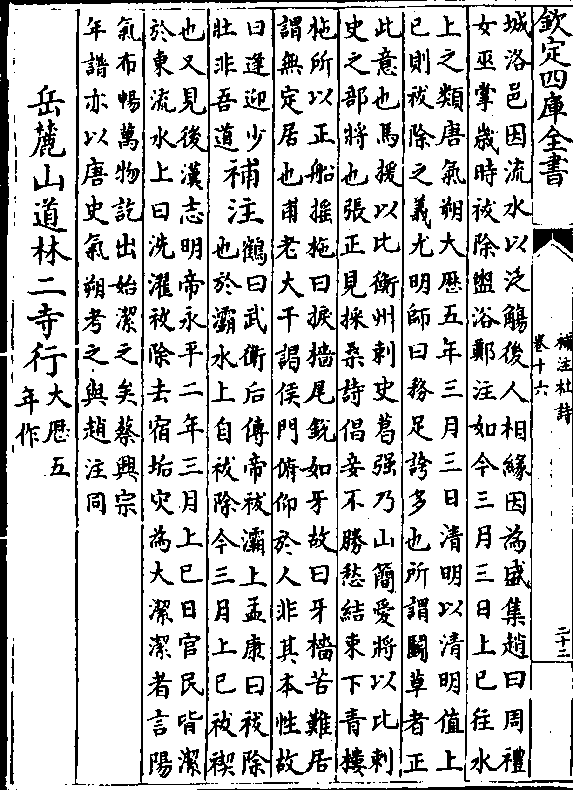 欽定四庫全書
補注杜詩
卷十六
二十二
城洛邑因流水以泛觴後人相縁因為盛集趙曰周禮
女巫掌歳時祓除盥浴鄭注如今三月三日上巳往水
上之類唐氣朔大歴五年三月三日清明以清明值上
巳則祓除之義尤明師曰務足誇多也所謂鬬草者正
此意也馬援以比衡州刺史葛强乃山簡愛將以比刺
史之部將也張正見採桑詩倡妾不勝愁結束下青樓
柂所以正船揺柂曰捩檣尾銳如牙故曰牙檣苦難居
謂無定居也甫老大干謁侯門俯仰於人非其本性故
曰逢迎少
壯非吾道
補注
鶴曰武衛后傳帝祓灞上孟康曰祓除
也於灞水上自祓除今三月上巳祓禊
也又見後漢志明帝永平二年三月上巳日官民皆潔
於東流水上曰洗濯祓除去宿垢灾為大潔潔者言陽
氣布暢萬物訖出始潔之矣蔡興宗
年譜亦以唐史氣朔考之與趙注同
岳麓山道林二寺行
大歴五
年作